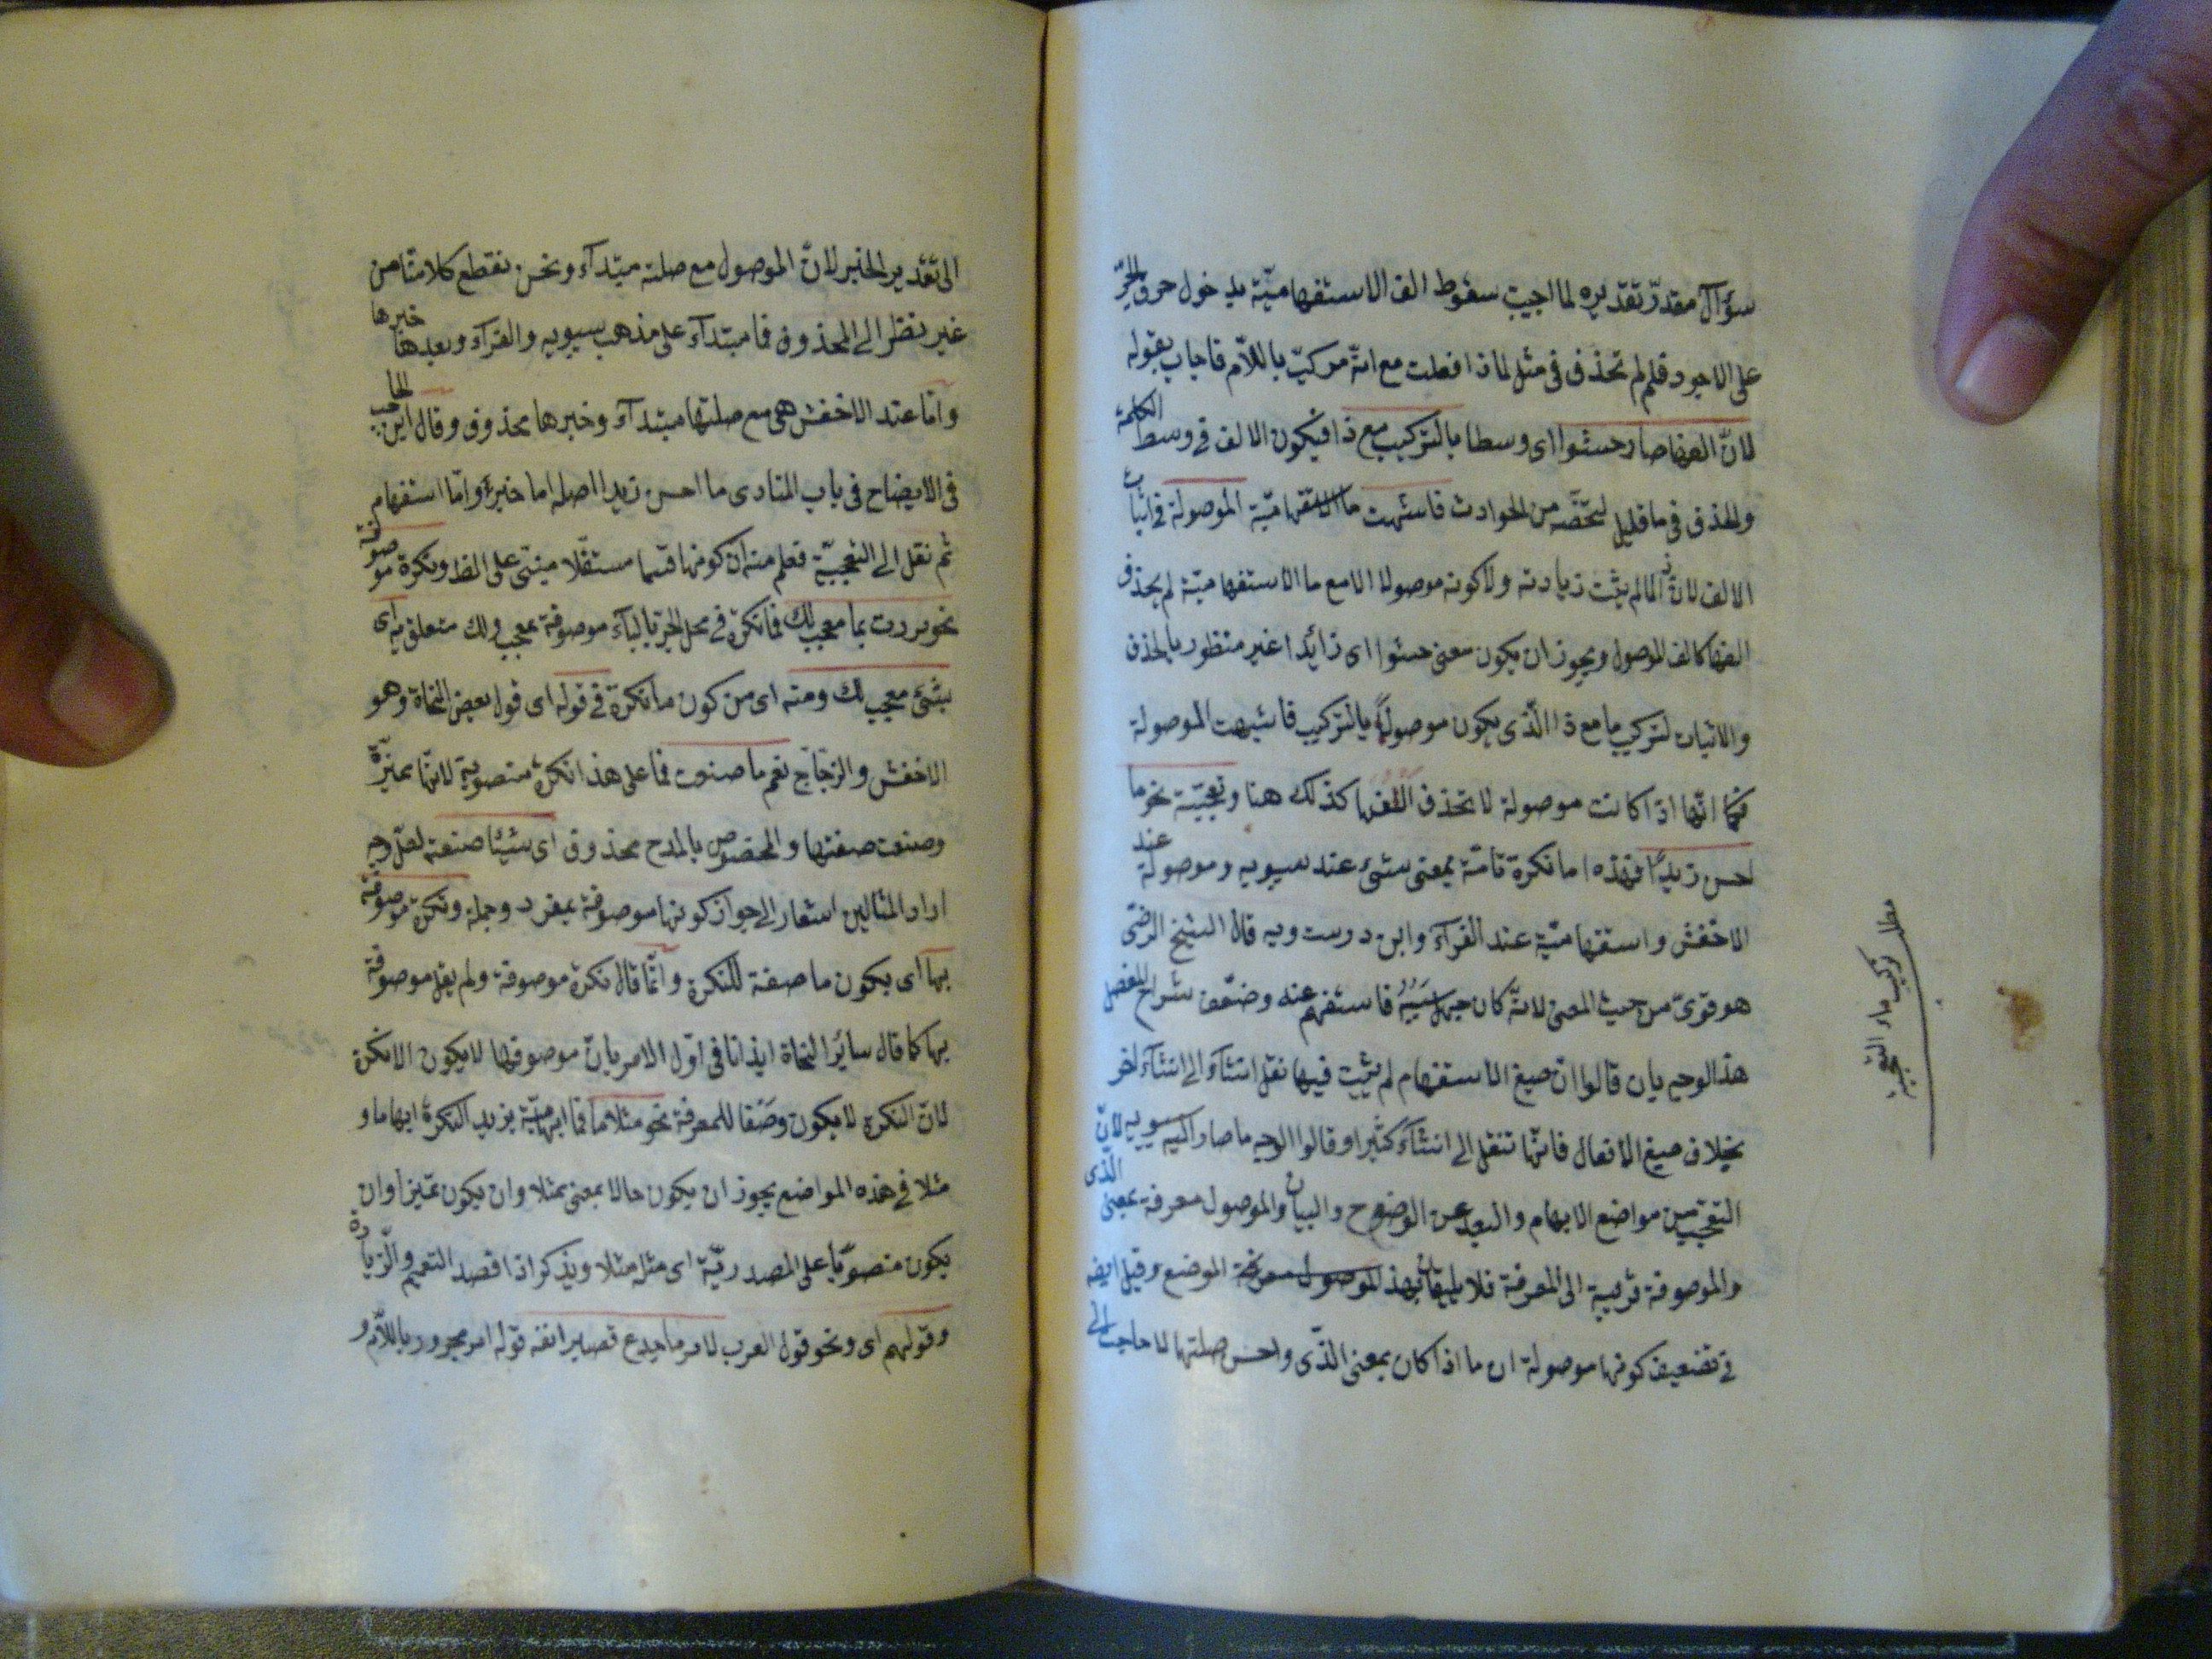 سؤآل مقدر تقديره لما اجيب سقوط الف الاستفهامية بدخول حرف الجر
على الاجود فلم لم تحذف في مثل لماذا فعلت مع انه مركب باللام فاجاب بقوله
لان الفها صار حشوا اى وسطا بالتركيب مع ذا فيكون الالف في وسط الكلمة
والحذف في ما قليل من الحوادث فاشبهت ما الموصولة في اثبات
الالف لان ذا لما لم يثبت زيادته ولا كونه موصولا الا مع ما الاستفهامية لم يحذف
الفها كالف الموصول ويجوز ان يكون معنى حشوا اى زائدا غير منظور بالحذف
والاثبات لتركيب ما مع ذا الذى يكون موصولا بالتركيب فاشبهت الموصولة
فكما انها اذا كانت موصولة لا تحذف الفها كذلك هنا وتعجبية نحو ما
احسن زيدا فهذه اما نكرة تامة بمعنى شئ عند سيبويه وموصولة عند
الاخفش واستفهامية عند الفرآء وابن درستويه قال الشيخ الرضى
هو قوى من حيث المعنى لانه كان جهل سببه فاستفهم عنه وضعف شراح المفصل
هذا الوجه بان قالوا ان صيغ الاستفهام لم يثبت فيها نقل انشاء الى انشاء اخر
بخلاف صيغ الافعال فانها تنقل الى انشاء كثيرا وقالوا الوجه ما صار اليه سيبويه لان
التعجب من مواضع الابهام والبعد عن الوضوح والبيان والموصول معرفة بمعنى الذى
والموصوفة قريبة الى المعرفة فلا يليقان بهذا الموضع وقيل ايضه
في تضعيف كونها موصولة ان ما اذا كان بمعنى الذى واحسن صلتها لاحاجت الى
مطلب تركيب ماء التعجبية
الى تقدير الخبر لان الموصول مع صلته مبتدآء ونحن نقطع كلاما تامن
غير نظر الى المحذوف فما مبتدآء على مذهب سيبويه والفرآء وبعدها خبرها
واما عند الاخفش هى مع صلتها مبتدآء وخبرها محذوف وقال ابن الحاجب
فى الايضاح فى باب المنادى ما احسن زيدا اصله اما خبرء واما استفهام
ثم نقل الى التعجبية فعلم منه ان كونها قسما مستقلا مبنى على الظ ونكرة موصوفة
نحو مررت بما معجب لك فما نكرة في محل الجر بالباء موصوفة بمعجب ولك متعلق به اى
بشئ معجب لك ومنه اى من كون ما نكرة في قوله اى قول بعض النحاة وهو
الاخفش والزجاج نعم ما صنعت فما على هذا نكرة منصوبة لانها مميزة
وصنعت صفتها والمخصوص بالمدح محذوف اى شيئا صنعته لعل وجه
ايراد المثالين اشعار الى جواز كونها موصوفة بمفرد وجملة ونكرة موصوفة
بها اى يكون ما صفة للنكرة وانما قال نكرة موصوفة ولم يقل موصوفة
بها كما قال سائر النحاة ايذانا فى اول الامر بان موصوفها لا يكون الا نكرة
لان النكرة لا يكون وصفا للمعرفة نحو مثلا ما فما ابهامية يزيد النكرة ابهاما و
مثلا في هذه المواضع يجوز ان يكون حالا بمعنى بمثلا وان يكون تميزا وان
يكون منصوبا على المصدرية اى مثل مثلا ويذكر اذا قصد التعميم والزيادة
وقولهم اى ونحو قول العرب لامر ما جدع قصير انفه قوله امر مجرور باللام و